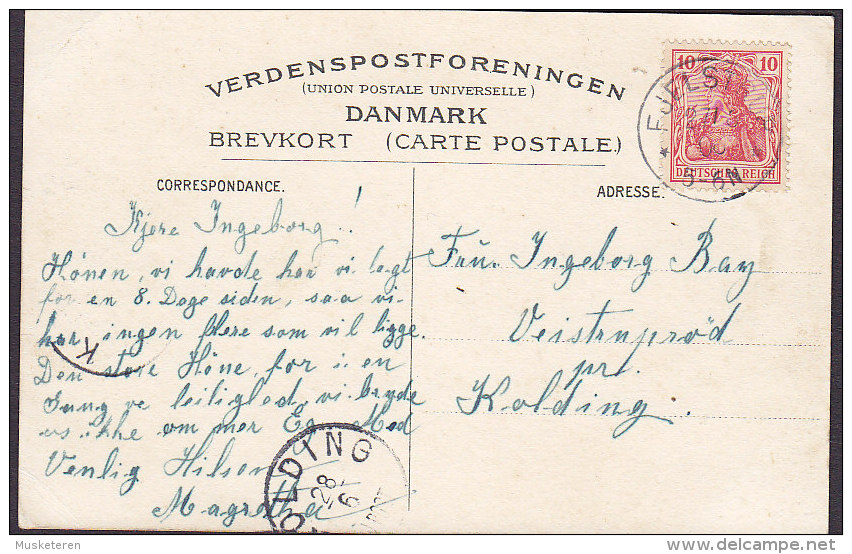 VERDENSPOSTFORENINGEN
(UNION POSTALE UNIVERSELLE)
DANMARK
BREVKORT (CARTE POSTALE.)
CORRESPONDANCE.
ADRESSE.
10 10
DEUTSCHES REICH
FJELST
5-6N
Kjere Ingeborg!
Hönen, vi havde har vi lagt
for en 8. Dage siden, saa vi
har ingen flere som vil ligge.
Den store Höne, for i en
Gang ve leilighed, vi bryde
os ikke om mer Eg. Med
Venlig Hilsen
Magretha
Frü. Ingeborg Bay
pr.
Kolding.
K
OLDING
28
6
Musketeren
www.delcampe.net